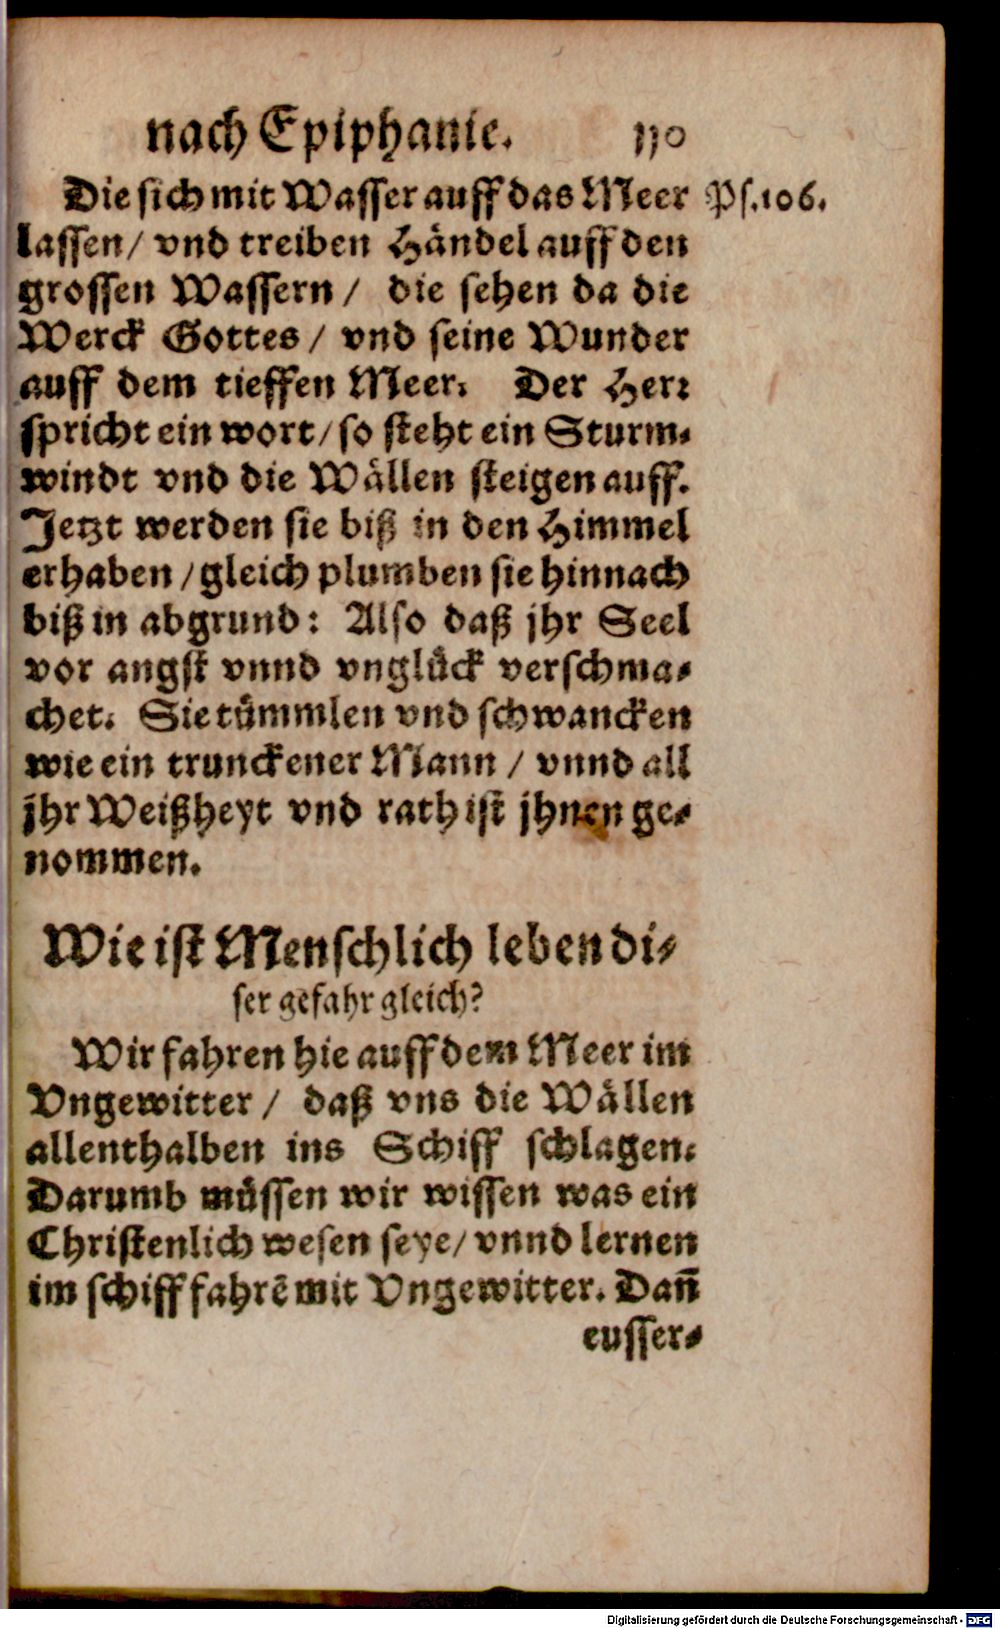 nach Epiphanie. 110
Die sich mit Wasser auff das Meer Ps.106.
lassen/ vnd treiben Händel auff den
grossen Wassern/ die sehen da die
Werck Gottes/ vnd seine Wunder
auff dem tieffen Meer. Der Herr
spricht ein wort/ so steht ein Sturm-
windt vnd die Wällen steigen auff.
Jetzt werden sie biß in den Himmel
erhaben/ gleich plumben sie hinnach
biß in abgrund: Also daß jhr Seel
vor angst vnnd vnglück verschma-
chet. Sie tümmlen vnd schwancken
wie ein trunckener Mann/ vnnd all
jhr Weißheyt vnd rath ist jhnen ge-
nommen.
Wie ist Menschlich leben di-
ser gefahr gleich?
Wir fahren hie auff dem Meer im
Vngewitter/ daß vns die Wällen
allenthalben ins Schiff schlagen.
Darumb müssen wir wissen was ein
Christenlich wesen seye/ vnnd lernen
im schiff fahrē mit Vngewitter. Dañ
eusser-
Digitalisierung gefördert durch die Deutsche Forschungsgemeinschaft - DFG